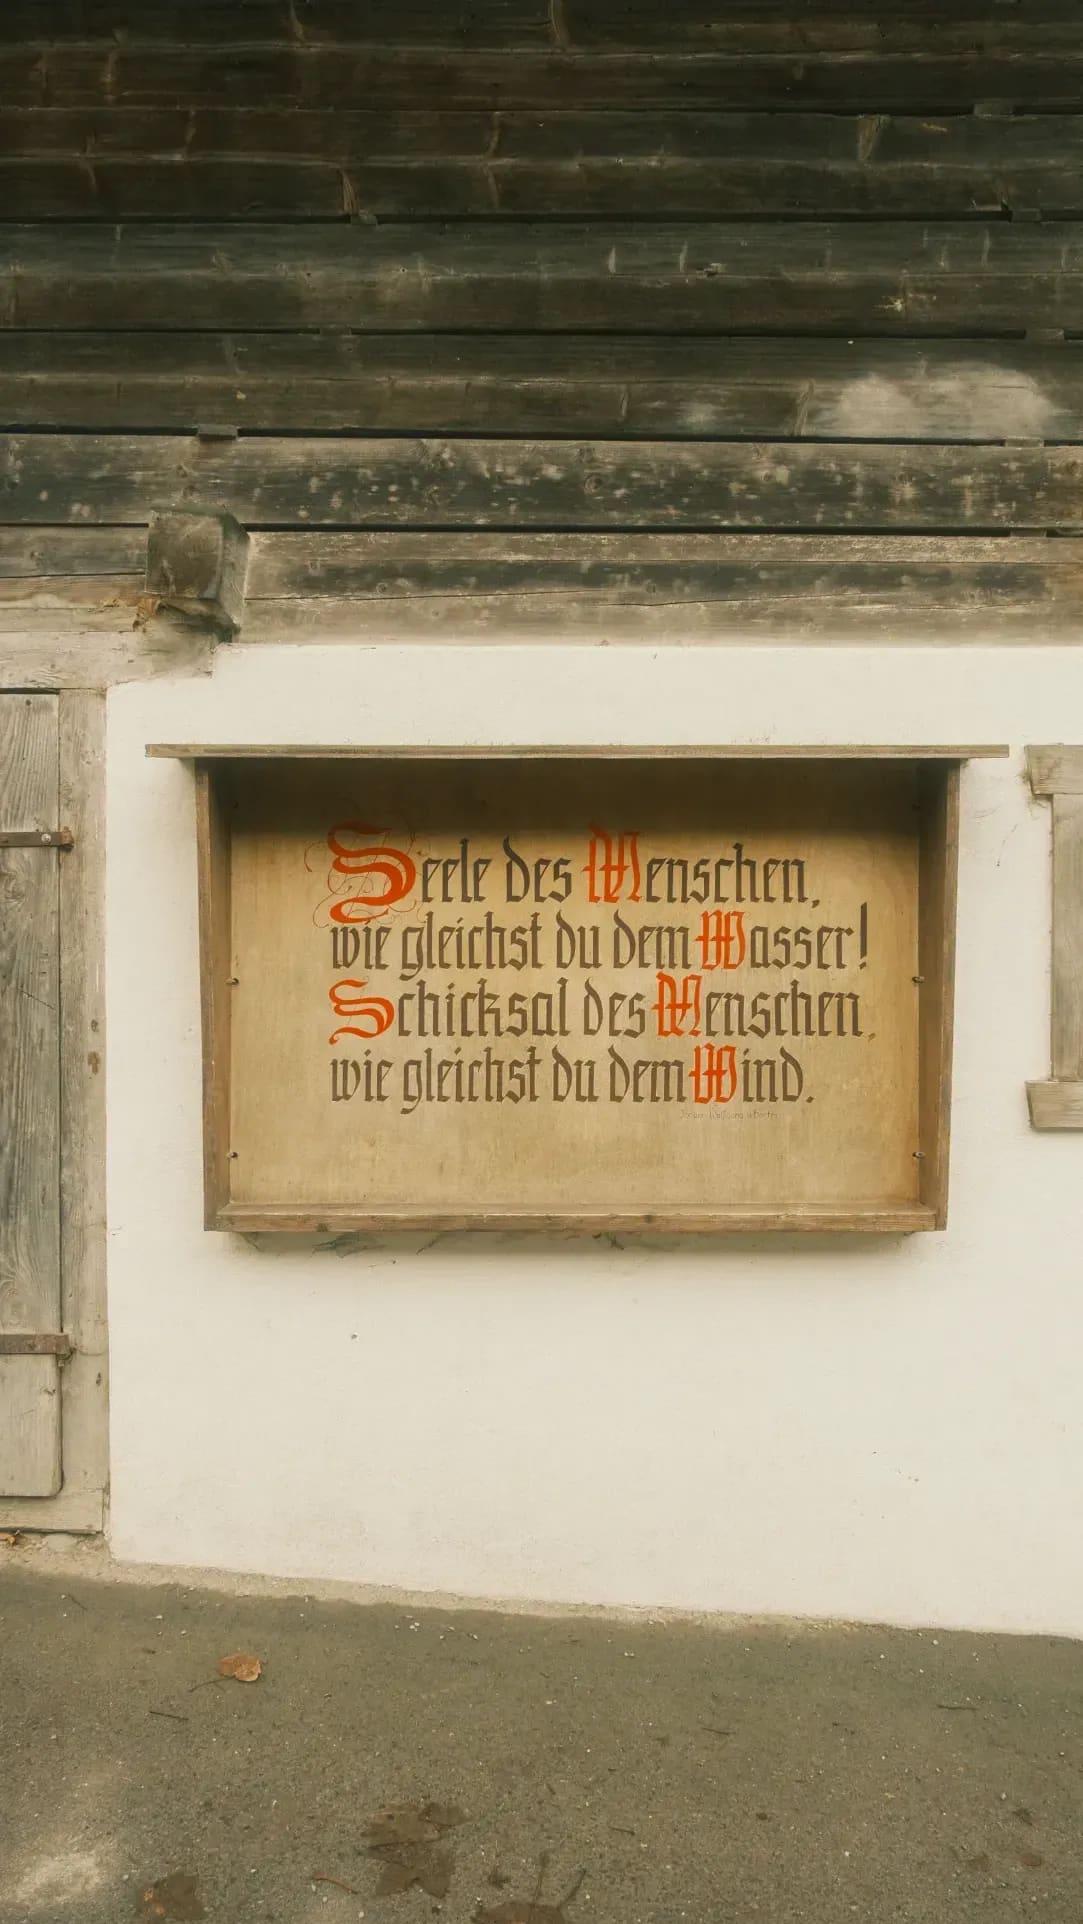 Seele des Menschen,
wie gleichst du dem Wasser!
Schicksal des Menschen,
wie gleichst du dem Wind.
Johann Wolfgang v.